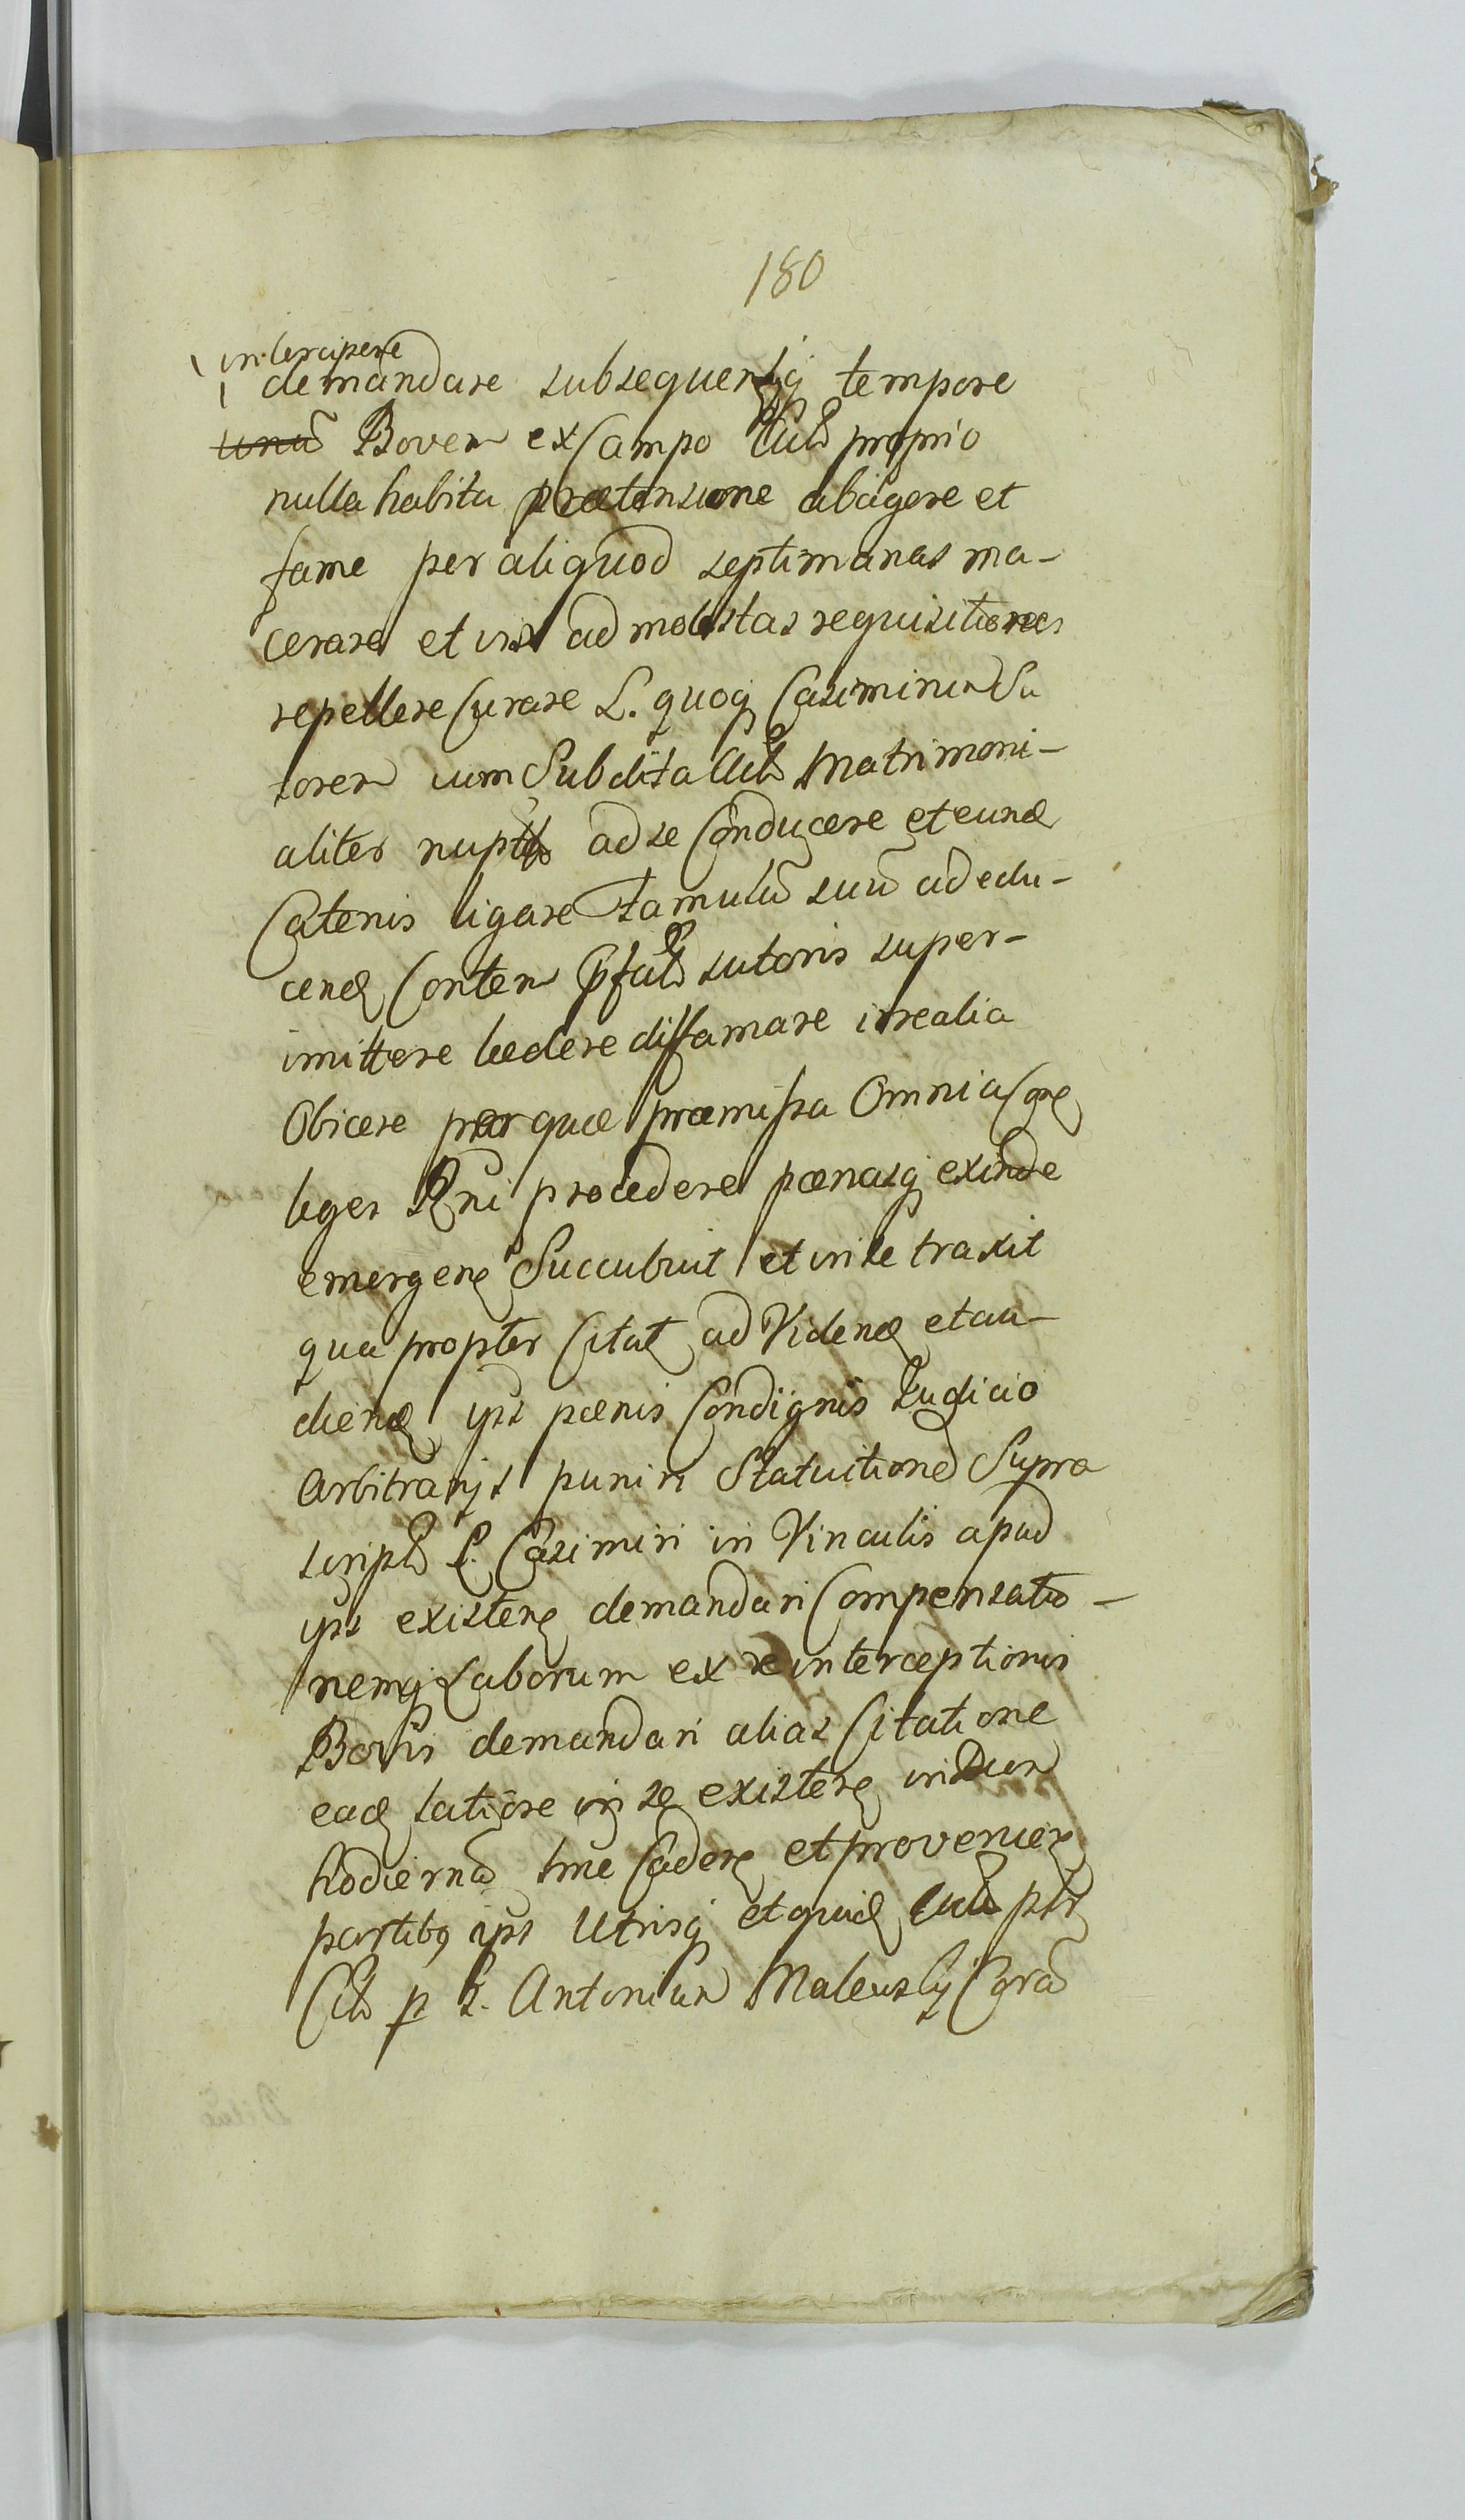 180
intercipere
demandare subsequentiq tempore
unu Bovem ex Campo proprio
nulla habita praetensione abagere et
fame per aliquod septimanas ma-
cerare et ad molestas requisitiones
repellere Curare L. quoq Casimirum Su
torem cum Subdita Matrimoni-
aliter ad se Conducere et eund
Catenis ligare Famulu suu ad edu-
cend super-
imittere laedere diffamare irrealia
Obicere per quae praemissa Omnia
leges Rni procedere poenasq exinde
emergen Succubuit et in se traxit
qua propter Citat ad Vidend et au-
diend ips poenis Condignis Iudicio
Arbitrarijs puniri Statuitione Supra
script L. Casimiri in Vinculis apud
ips existen demandari Compensatio-
nemq Laborum ex re interceptionis
Bovis demandari alias Citatione
ead latiore in se existen
hodierna tme Caden et provenien
partibq ips Utrisq et quid
p L. Antonium